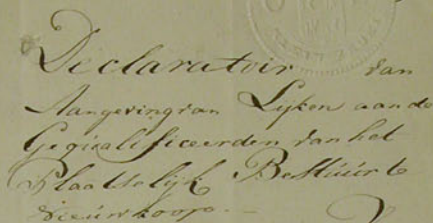 Declaratoir van
Aangeving van Lijken aan de
Gequalificeerden van het
Plaatselijk Bestuur te
Nieuwkoop.